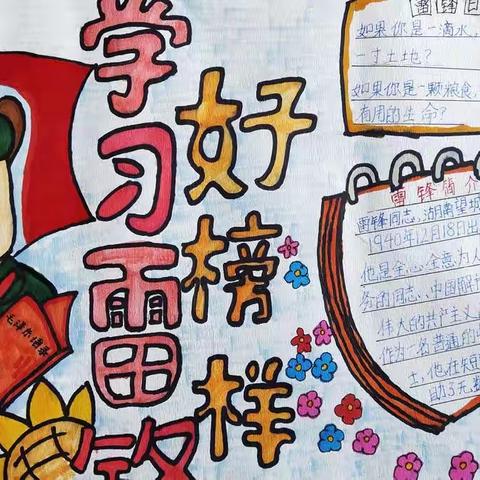 学习雷锋
好榜样
毛泽东语录
雷锋日
如果你是一滴水,
一寸土地?
如果你是一颗粮食,
有用的生命?
雷锋简介
雷锋同志,湖南望城
1940年12月18日出
他是全心全意为人
务的同志、中国
伟大的共产主义
作为一名普通的
士,他在短
助了无数